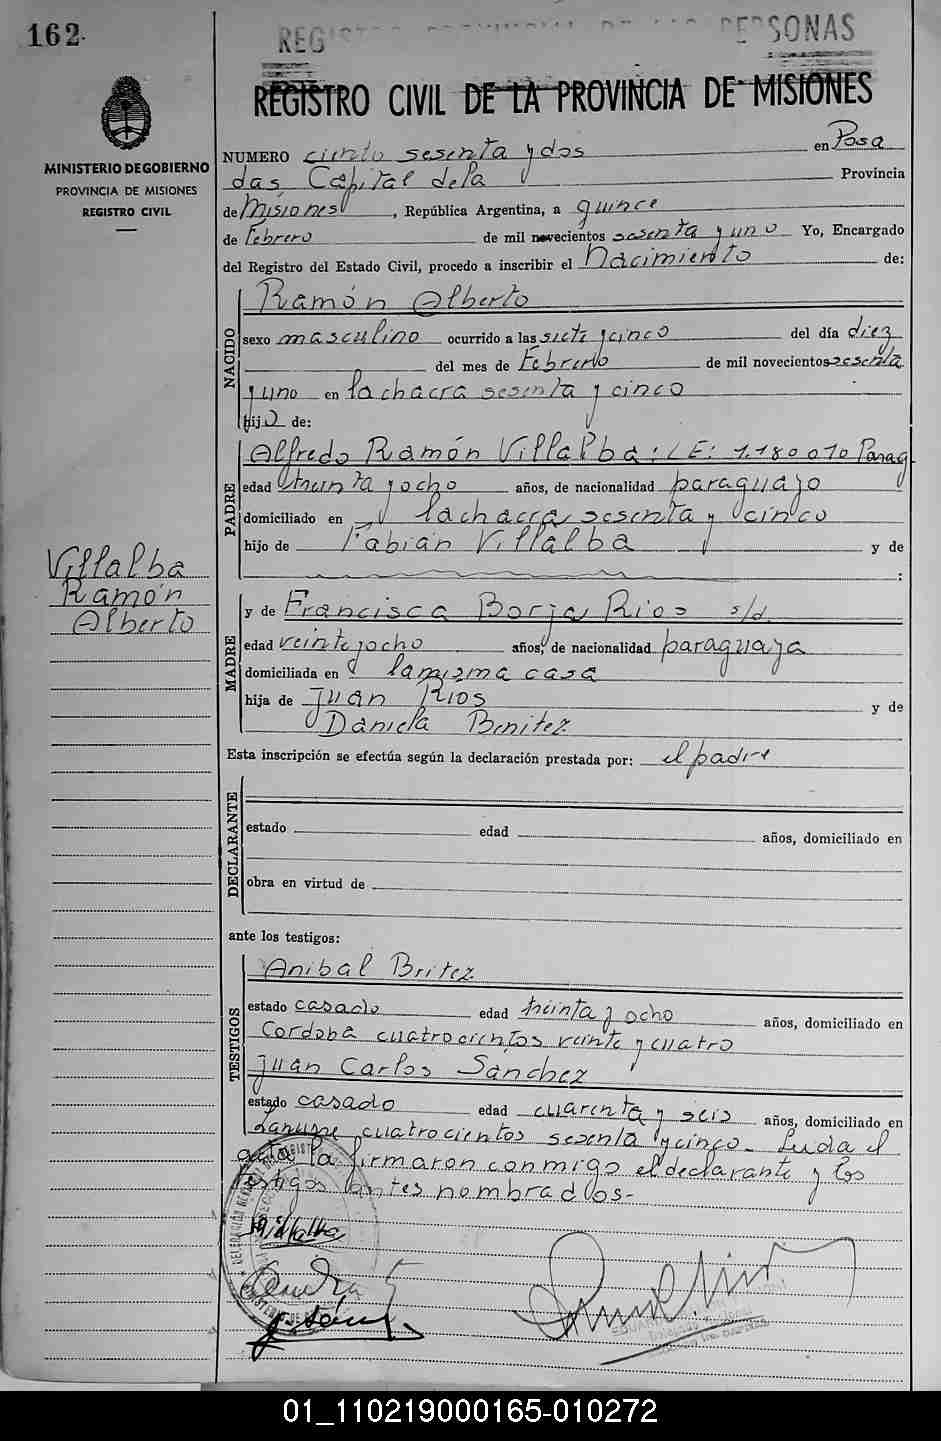 162
REGISTRO PROVINCIAL DE LAS PERSONAS
REGISTRO CIVIL DE LA PROVINCIA DE MISIONES
MINISTERIO DE GOBIERNO
PROVINCIA DE MISIONES
REGISTRO CIVIL
NUMERO ciento sesenta y dos en Posa
das, Capital de la Provincia
de Misiones, República Argentina, a quince
de Febrero de mil novecientos sesenta y uno Yo, Encargado
del Registro del Estado Civil, procedo a inscribir el Nacimiento de:
NACIDO
Ramón Alberto
sexo masculino ocurrido a las siete y cinco del día diez
del mes de Febrero de mil novecientos sesenta
y uno en la chacra sesenta y cinco
hijo de:
PADRE
Alfredo Ramón Villalba: LE: 1.180070 Parag
edad treinta y ocho años, de nacionalidad paraguayo
domiciliado en la chacra sesenta y cinco
hijo de Fabián Villalba y de
:
Villalba
Ramón
Alberto
MADRE
y de Francisca Borja Rios s/d.
edad veinte y ocho años, de nacionalidad paraguaya
domiciliada en la misma casa
hija de Juan Rios y de
Daniela Benitez
Esta inscripción se efectúa según la declaración prestada por: el padre
DECLARANTE
estado edad años, domiciliado en
obra en virtud de
ante los testigos:
TESTIGOS
Anibal Britez
estado casado edad treinta y ocho años, domiciliado en
Cordoba cuatrocientos veinte y cuatro
Juan Carlos Sánchez
estado casado edad cuarenta y seis años, domiciliado en
Lanusse cuatrocientos sesenta y cinco. Leida el
acta la firmaron conmigo el declarante y los
testigos antes nombrados-
Villalba
01_110219000165-010272